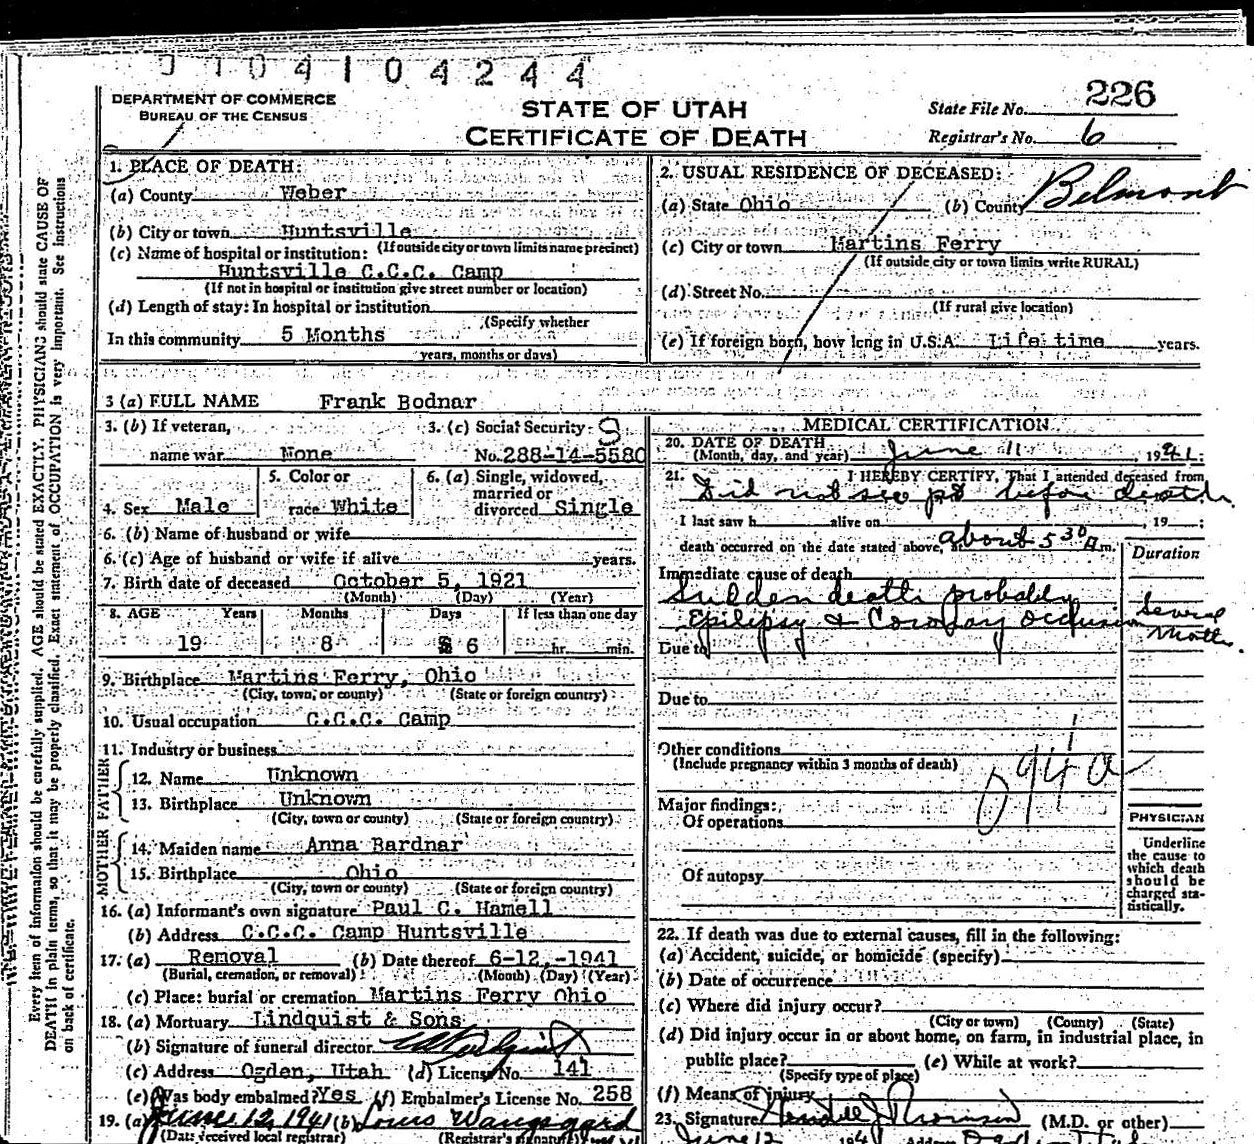 0104104244
DEPARTMENT OF COMMERCE
BUREAU OF THE CENSUS
STATE OF UTAH
CERTIFICATE OF DEATH
State File No. 226
Registrar's No. 6
1. PLACE OF DEATH:
(a) County Weber
(b) City or town Huntsville
(If outside city or town limits name precinct)
(c) Name of hospital or institution:
Huntsville C.C.C. Camp
(If not in hospital or institution give street number or location)
(d) Length of stay: In hospital or institution
(Specify whether
In this community 5 Months
years, months or days)
2. USUAL RESIDENCE OF DECEASED:
(a) State Ohio (b) County Belmont
(c) City or town Martins Ferry
(If outside city or town limits write RURAL)
(d) Street No.
(If rural give location)
(e) If foreign born, how long in U.S.A. Life time years.
3 (a) FULL NAME Frank Bodnar
3. (b) If veteran,
name war None
3. (c) Social Security S
No. 288-14-5580
4. Sex Male
5. Color or
race White
6. (a) Single, widowed,
married or
divorced Single
6. (b) Name of husband or wife
6. (c) Age of husband or wife if alive years.
7. Birth date of deceased October 5, 1921
(Month) (Day) (Year)
8. AGE Years Months Days If less than one day
19 8 6 hr. min.
9. Birthplace Martins Ferry, Ohio
(City, town, or county) (State or foreign country)
10. Usual occupation C.C.C. Camp
11. Industry or business
FATHER
12. Name Unknown
13. Birthplace Unknown
(City, town or county) (State or foreign country)
MOTHER
14. Maiden name Anna Bardnar
15. Birthplace Ohio
(City, town or county) (State or foreign country)
16. (a) Informant's own signature Paul C. Hamell
(b) Address C.C.C. Camp Huntsville
17. (a) Removal (b) Date thereof 6-12,-1941
(Burial, cremation, or removal) (Month) (Day) (Year)
(c) Place: burial or cremation Martins Ferry Ohio
18. (a) Mortuary Lindquist & Sons
(b) Signature of funeral director
(c) Address Ogden, Utah (d) License No. 141
(e) Was body embalmed? Yes (f) Embalmer's License No. 258
19. (a) June 12, 1941 (b) Louis Wangsgard
(Date received local registrar) (Registrar's signature)
MEDICAL CERTIFICATION
20. DATE OF DEATH
(Month, day, and year) June 11, 1941
21. I HEREBY CERTIFY, That I attended deceased from
Did not see pt before death.
I last saw h alive on , 19 ;
death occurred on the date stated above, at about 5 30 A m.
Duration
Immediate cause of death
Sudden death probably
Epilepsy & Coronary Occlusion
Several
Months.
Due to
Due to
Other conditions
(Include pregnancy within 3 months of death)
094a
Major findings:
Of operations
Of autopsy
PHYSICIAN
Underline
the cause to
which death
should be
charged sta-
tistically.
22. If death was due to external causes, fill in the following:
(a) Accident, suicide, or homicide (specify)
(b) Date of occurrence
(c) Where did injury occur?
(City or town) (County) (State)
(d) Did injury occur in or about home, on farm, in industrial place, in
public place? (e) While at work?
(Specify type of place)
(f) Means of injury
23. Signature (M.D. or other)
June 12 194
Every item of information should be carefully supplied. AGE should be stated EXACTLY. PHYSICIANS should state CAUSE OF
DEATH in plain terms, so that it may be properly classified. Exact statement of OCCUPATION is very important. See Instructions
on back of certificate.